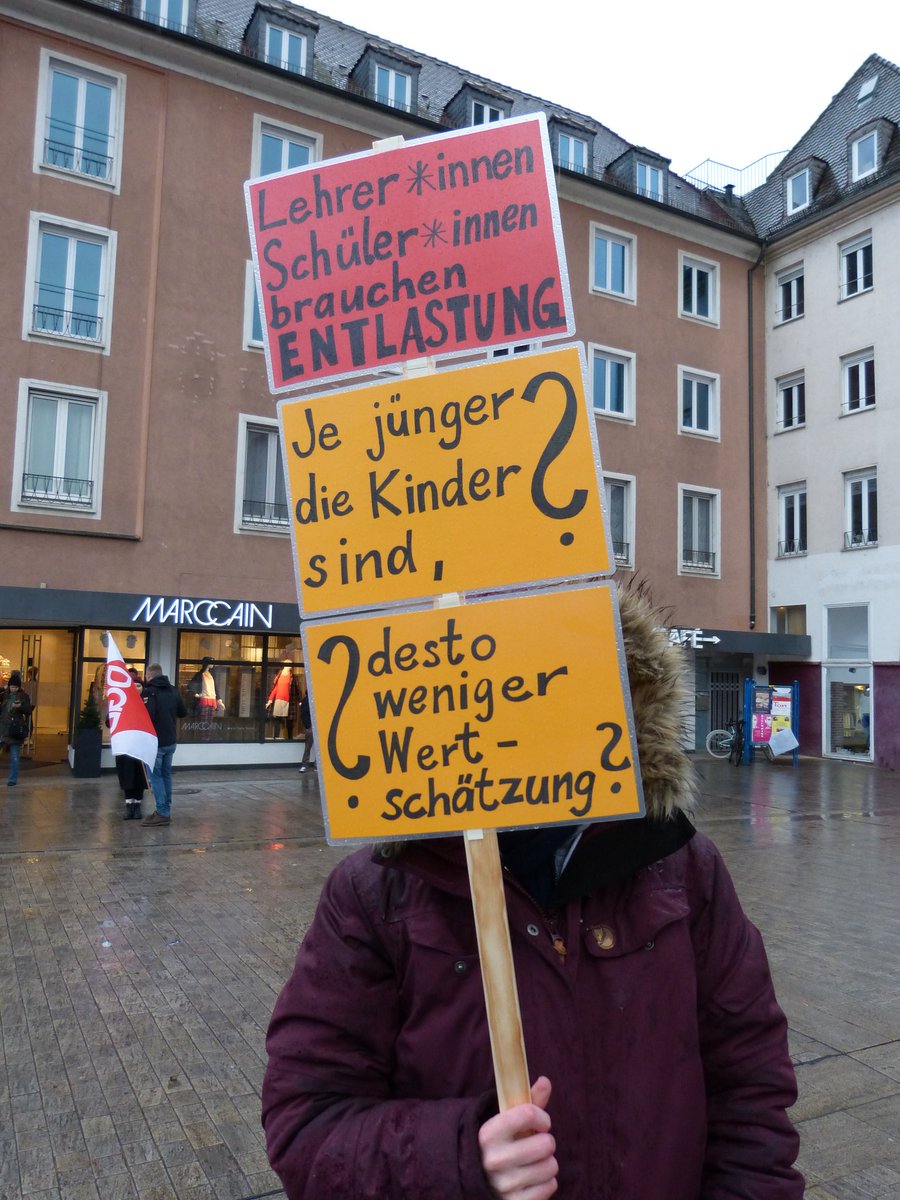 Lehrer*innen
Schüler*innen
brauchen
ENTLASTUNG
Je jünger
die Kinder
sind, ?
? desto
weniger
Wert-
schätzung?
MARCCAIN
MARCCAIN